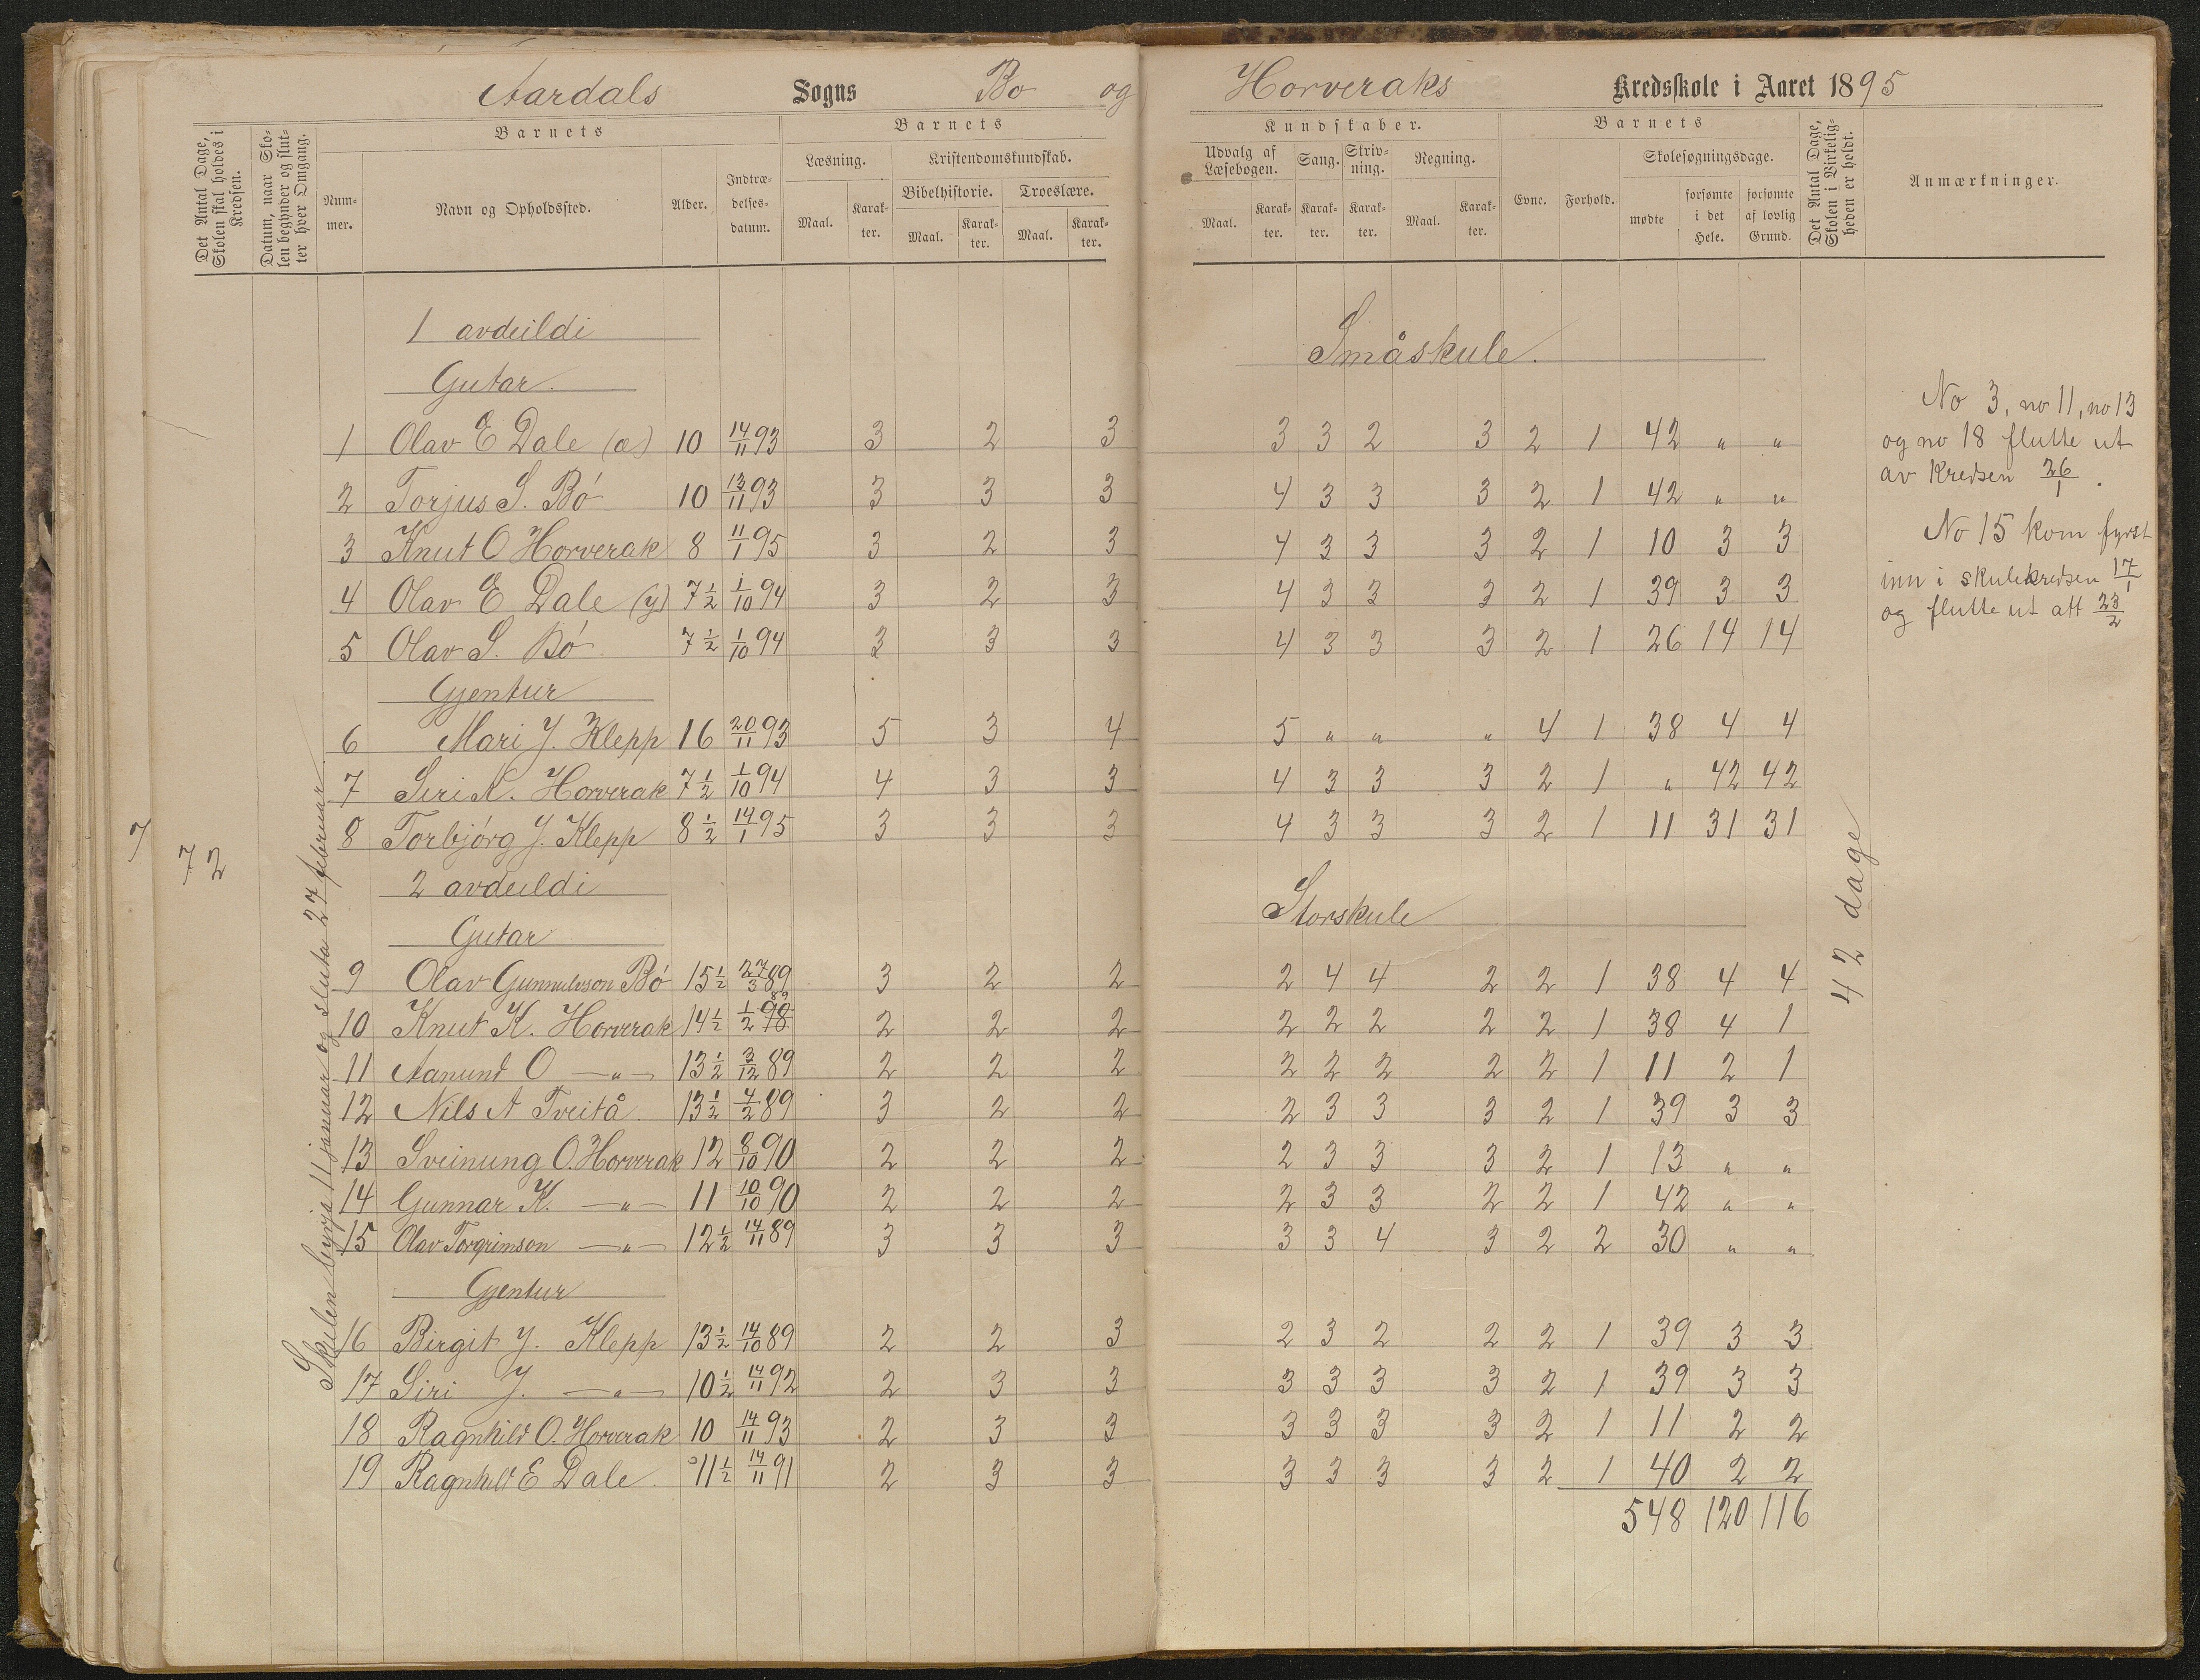 Aardals Sogns Bo og Horveraks Kredsskole i Aaret 1895
Det Antal Dage, Skolen skal holdes i Kredsen.
Datum, naar Skolen begynder og slutter hver Omgang.
Barnets
Nummer.
Navn og Opholdssted.
Alder.
Indtrædelsesdatum.
Barnets
Læsning.
Maal.
Karakter.
Kristendomskundskab.
Bibelhistorie.
Maal.
Karakter.
Troeslære.
Maal.
Karakter.
Kundskaber.
Udvalg af Læsebogen.
Maal.
Karakter.
Sang.
Karakter.
Skrivning.
Karakter.
Regning.
Maal.
Karakter.
Barnets
Evne.
Forhold.
Skolesøgningsdage.
mødte
forsømte i det Hele.
forsømte af lovlig Grund.
Det Antal Dage, Skolen i Virkeligheden er holdt.
Anmærkninger.
7
72
Skulen byrja 11 januar og sluta 27 februar.
1 avdeildi Småskule.
Gutar.
1 Olav E Dale (æ) 10 14/11 93 3 2 3 3 3 2 3 2 1 42 " "
2 Torjus S. Bó 10 13/11 93 3 3 3 4 3 3 3 2 1 42 " "
3 Knut O Horverak 8 11/1 95 3 2 3 4 3 3 3 2 1 10 3 3
4 Olav E Dale (y) 7 1/2 1/10 94 3 2 3 4 3 3 3 2 1 39 3 3
5 Olav S. Bó 7 1/2 1/10 94 3 3 3 4 3 3 3 2 1 26 14 14
Gjentur
6 Mari J. Klepp 16 20/11 93 5 3 4 5 " " " 4 1 38 4 4
7 Siri K. Horverak 7 1/2 1/10 94 4 3 3 4 3 3 3 2 1 " 42 42
8 Torbjórg J. Klepp 8 1/2 14/1 95 3 3 3 4 3 3 3 2 1 11 31 31
2 avdeildi Storskule
Gutar
9 Olav Gunnulvson Bó 15 1/2 27/3 89 3 2 2 2 4 4 2 2 1 38 4 4
10 Knut K. Horverak 14 1/2 1/2 98 89 2 2 2 2 2 2 2 2 1 38 4 1
11 Aanund O —"— 13 1/2 3/12 89 2 2 2 2 2 2 2 2 1 11 2 1
12 Nils A Tveitå 13 1/2 4/2 89 3 2 2 2 3 3 3 2 1 39 3 3
13 Sveinung O. Horverak 12 8/10 90 2 2 2 2 3 3 3 2 1 13 " "
14 Gunnar K. —"— 11 10/10 90 2 2 2 2 3 3 2 2 1 42 " "
15 Olav Torgrimson —"— 12 1/2 14/11 89 3 3 3 3 3 4 3 2 2 30 " "
Gjentur
16 Birgit J. Klepp 13 1/2 14/10 89 2 2 3 2 3 2 2 2 1 39 3 3
17 Siri J. —"— 10 1/2 14/11 92 2 3 3 3 3 3 3 2 1 39 3 3
18 Ragnhild O. Horverak 10 14/11 93 2 3 3 3 3 3 3 2 1 11 2 2
19 Ragnhild E Dale. 11 1/2 14/11 91 2 3 3 3 3 3 3 2 1 40 2 2
548 120 116
42 dage
No 3, no 11, no 13
og no 18 flutte ut
av Kredsen 26/1.
No 15 kom fyrst
inn i skulekredsen 17/1
og flutte ut att 23/2